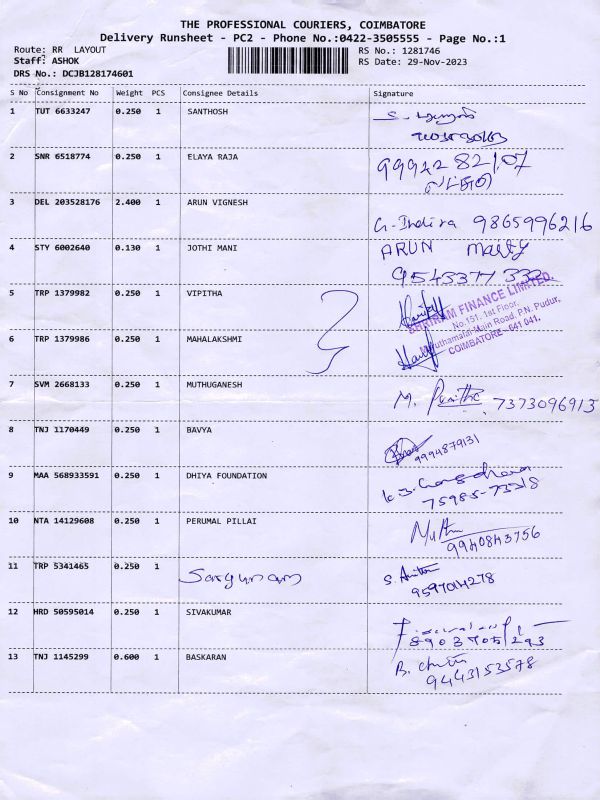 THE PROFESSIONAL COURIERS, COIMBATORE
Delivery Runsheet - PC2 - Phone No.:0422-3505555 - Page No.:1
Route: RR LAYOUT RS No.: 1281746
Staff: ASHOK RS Date: 29-Nov-2023
DRS No.: DCJB128174601
S No Consignment No Weight PCS Consignee Details Signature
1 TUT 6633247 0.250 1 SANTHOSH
2 SNR 6518774 0.250 1 ELAYA RAJA 99942 82107
3 DEL 203528176 2.400 1 ARUN VIGNESH G. Indira 9865996216
4 STY 6002640 0.130 1 JOTHI MANI ARUN
9543377 332
5 TRP 1379982 0.250 1 VIPITHA
SHRIRAM FINANCE LIMITED.
No.151, 1st Floor,
Main Road, P.N. Pudur,
COIMBATORE - 641 041.
6 TRP 1379986 0.250 1 MAHALAKSHMI
7 SVM 2668133 0.250 1 MUTHUGANESH M. Punitha 7373096913
8 TNJ 1170449 0.250 1 BAVYA 9994879131
9 MAA 568933591 0.250 1 DHIYA FOUNDATION
75985-73318
10 NTA 14129608 0.250 1 PERUMAL PILLAI Muthu
9940843756
11 TRP 5341465 0.250 1 Sargunam S. Anitha
9597014278
12 HRD 50595014 0.250 1 SIVAKUMAR
8903705293
13 TNJ 1145299 0.600 1 BASKARAN B. Chitra
9443153578